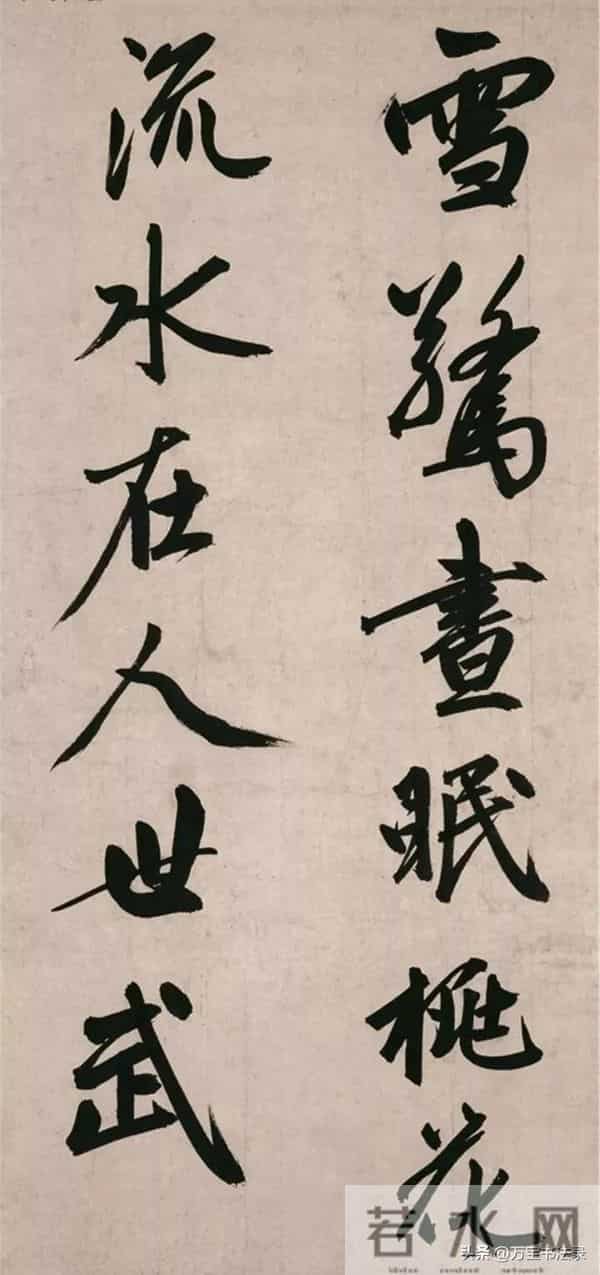 雪驚晝眠桃花
流水在人世武
若水网
头条 @万里书法录